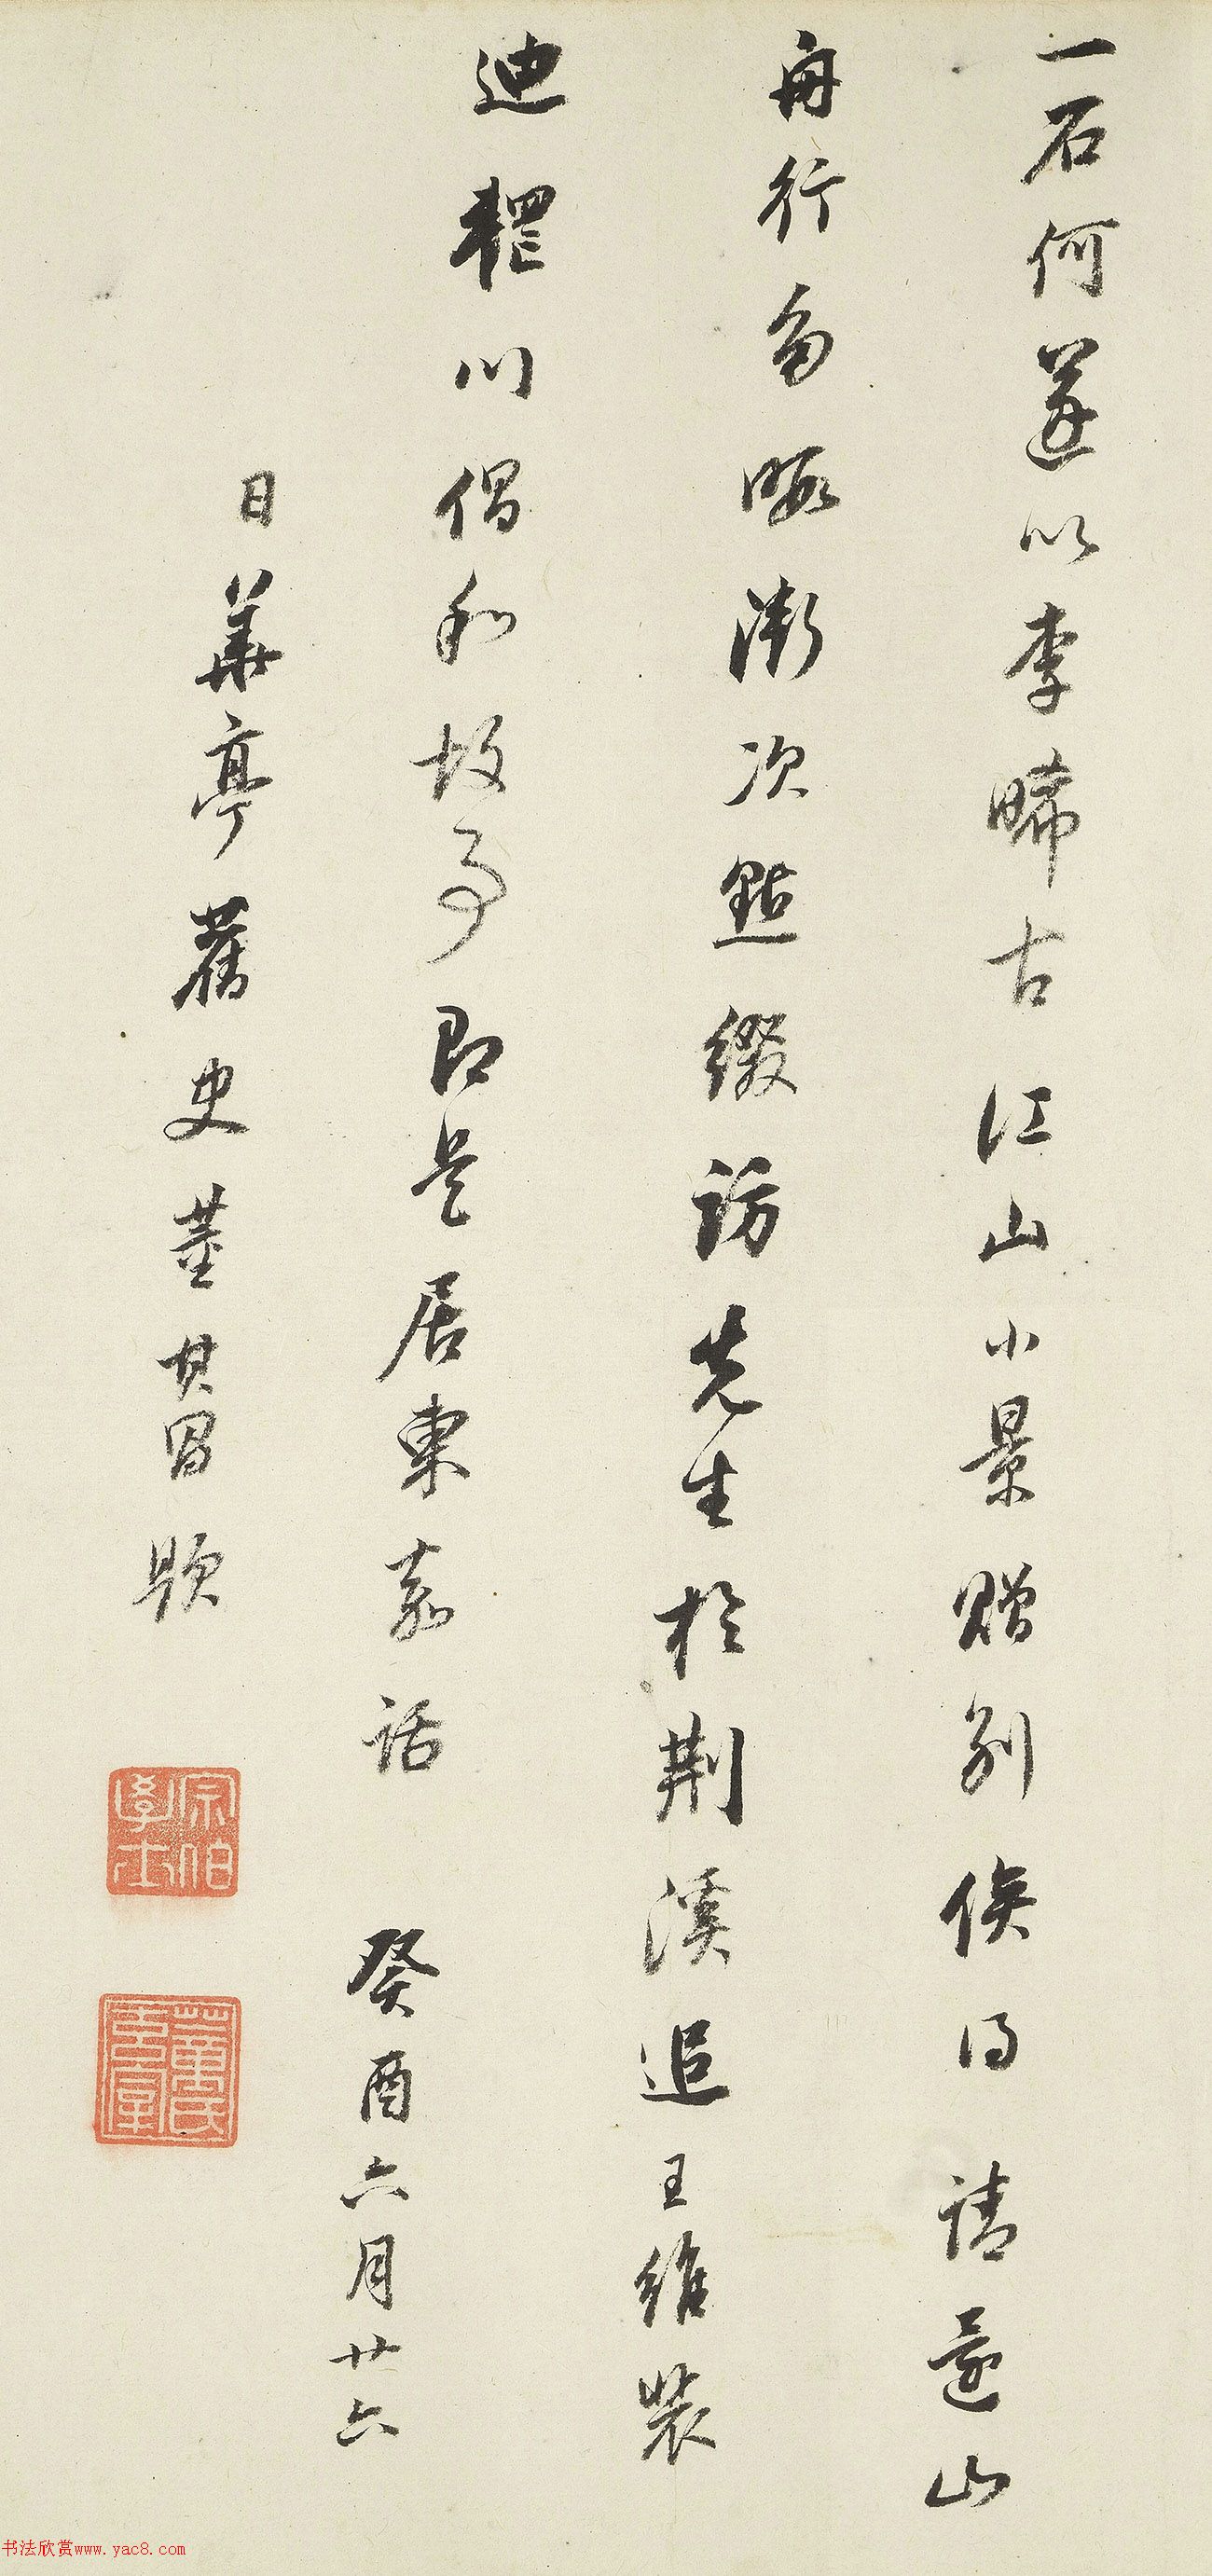 一石何遂以李晞古江山小景贈別俟得請還山
舟行多暇漸次點綴訪先生於荆溪追王維裴
迪輞川倡和故事即是居東嘉話 癸酉六月廿六
日華亭舊史董其昌題
宗伯學士
董氏玄宰
书法欣赏www.yac8.com